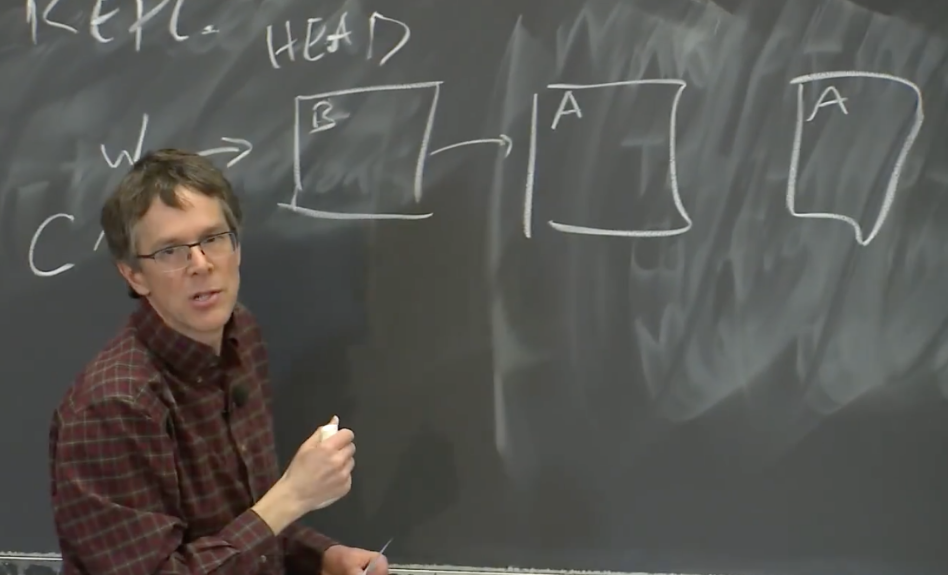 REPL.
HEAD
W → B → A A
C